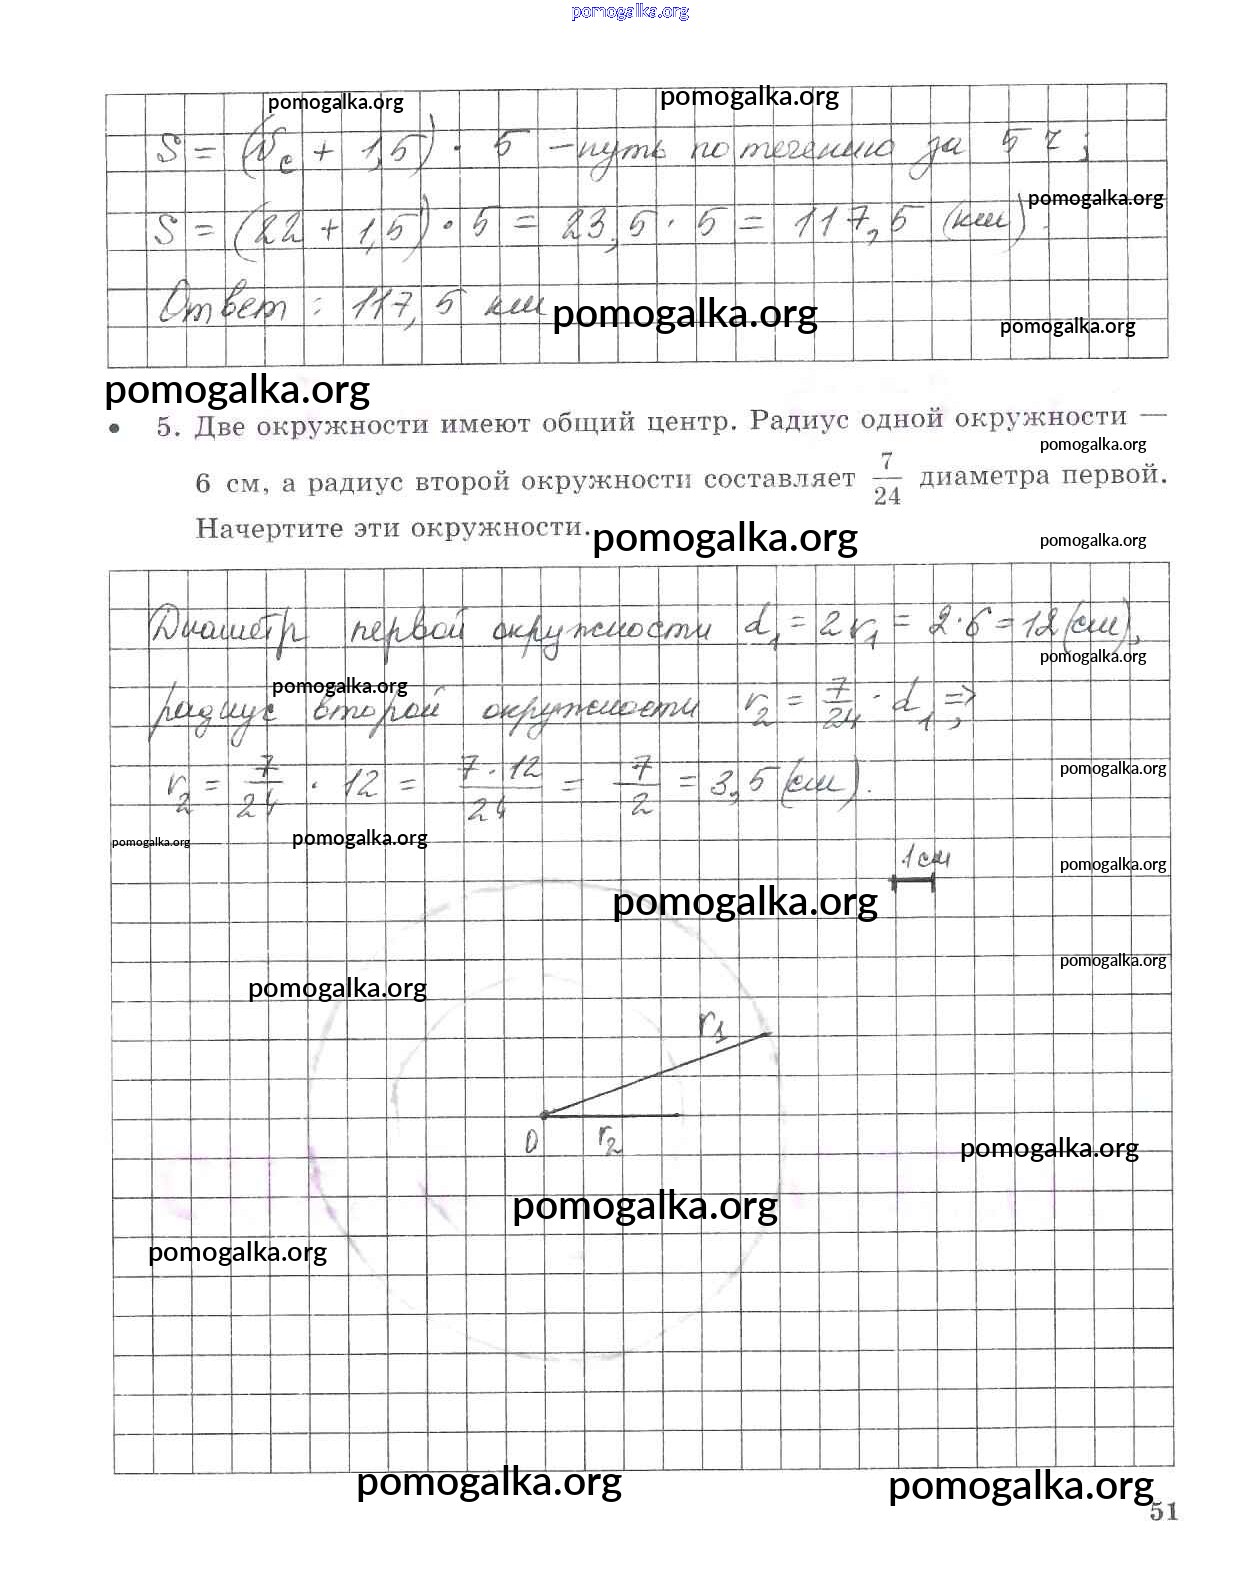 pomogalka.org
pomogalka.org pomogalka.org
S = (V_c + 1,5) · 5 – путь по течению за 5 ч;
pomogalka.org
S = (22 + 1,5) · 5 = 23,5 · 5 = 117,5 (км).
Ответ: 117,5 км
pomogalka.org pomogalka.org
pomogalka.org
• 5. Две окружности имеют общий центр. Радиус одной окружности —
pomogalka.org
6 см, а радиус второй окружности составляет 7/24 диаметра первой.
Начертите эти окружности.
pomogalka.org pomogalka.org
Диаметр первой окружности d₁ = 2r₁ = 2·6 = 12 (см),
pomogalka.org
pomogalka.org
радиус второй окружности r₂ = 7/24 · d₁ ⇒;
r₂ = 7/24 · 12 = 7·12/24 = 7/2 = 3,5 (см).
pomogalka.org
pomogalka.org pomogalka.org
1 см
pomogalka.org
pomogalka.org
pomogalka.org
pomogalka.org
r₁
O r₂
pomogalka.org
pomogalka.org
pomogalka.org
pomogalka.org pomogalka.org
51